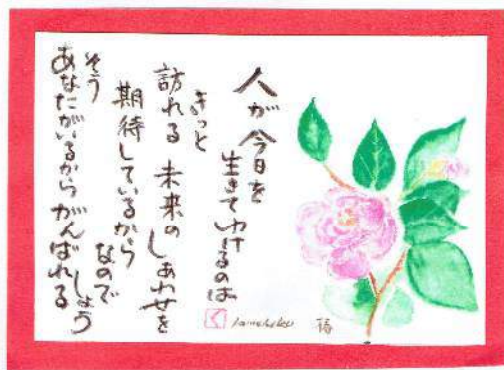 人が今日を
生きてゆけるのは
きっと
訪れる 未来のしあわせを
期待しているから
なので
しょう
そう
あなたがいるから がんばれる
椿